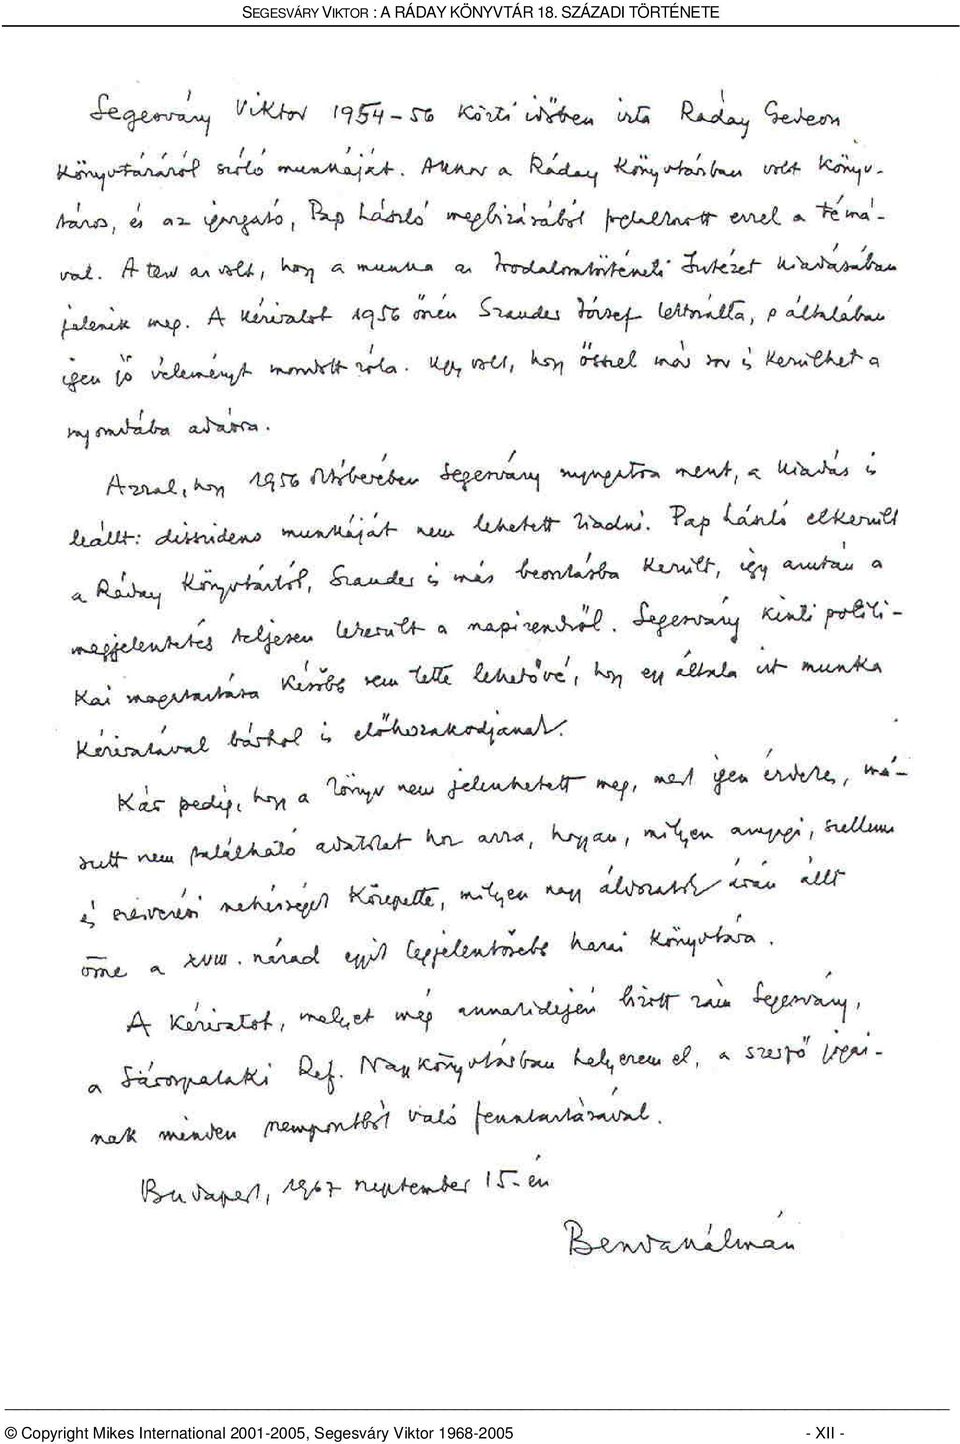 SEGESVÁRY VIKTOR : A RÁDAY KÖNYVTÁR 18. SZÁZADI TÖRTÉNETE
Segesváry Viktor 1954-56 közti időben írta Ráday Gedeon
könyvtáráról szóló munkáját. Akkor a Ráday Könyvtárban volt könyv-
táros, és az igazgató, Pap László megbízásából foglalkozott ezzel a témá-
val. A terv az volt, hogy a munka az Irodalomtörténeti Intézet kiadásában
jelenik meg. A kéziratot 1956 őszén Szauder József lektorálta, s általában
igen jó véleményt mondott róla. Úgy volt, hogy ősszel már sor is kerülhet a
nyomdába adásra.
Azzal, hogy 1956 októberében Segesváry nyugatra ment, a kiadás is
leállt: disszidens munkáját nem lehetett kiadni. Pap László elkerült
a Ráday Könyvtártól, Szauder is más beosztásba került, így azután a
megjelentetés teljesen lekerült a napirendről. Segesváry kinti politi-
kai magatartása később sem tette lehetővé, hogy egy általa írt munka
kéziratával bárhol is előhozakodjanak.
Kár pedig, hogy a könyv nem jelenhetett meg, mert igen érdekes, má-
sutt nem található adatokat hoz arra, hogyan, milyen anyagi, szellemi
és nehézségek közepette, milyen nagy áldozatok árán állt
össze a XVIII. század egyik legjelentősebb hazai könyvtára.
A kéziratot, melyet még annakidején bízott rám Segesváry,
a Sárospataki Ref. Nagykönyvtárban helyezem el, a szerző jogai-
nak minden szempontból való fenntartásával.
Budapest, 1967 szeptember 15-én
Benda Kálmán
© Copyright Mikes International 2001-2005, Segesváry Viktor 1968-2005 - XII -